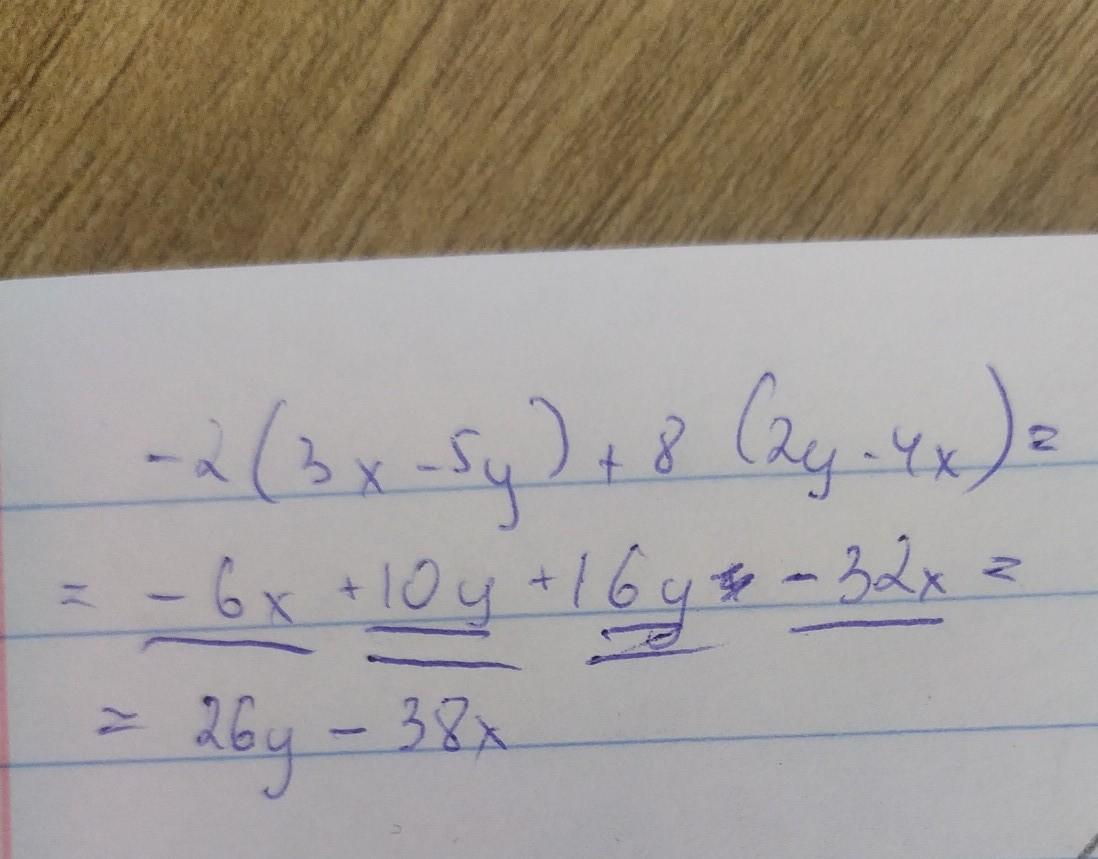 -2(3x-5y)+8(2y-4x)=
= -6x +10y +16y -32x =
= 26y - 38x